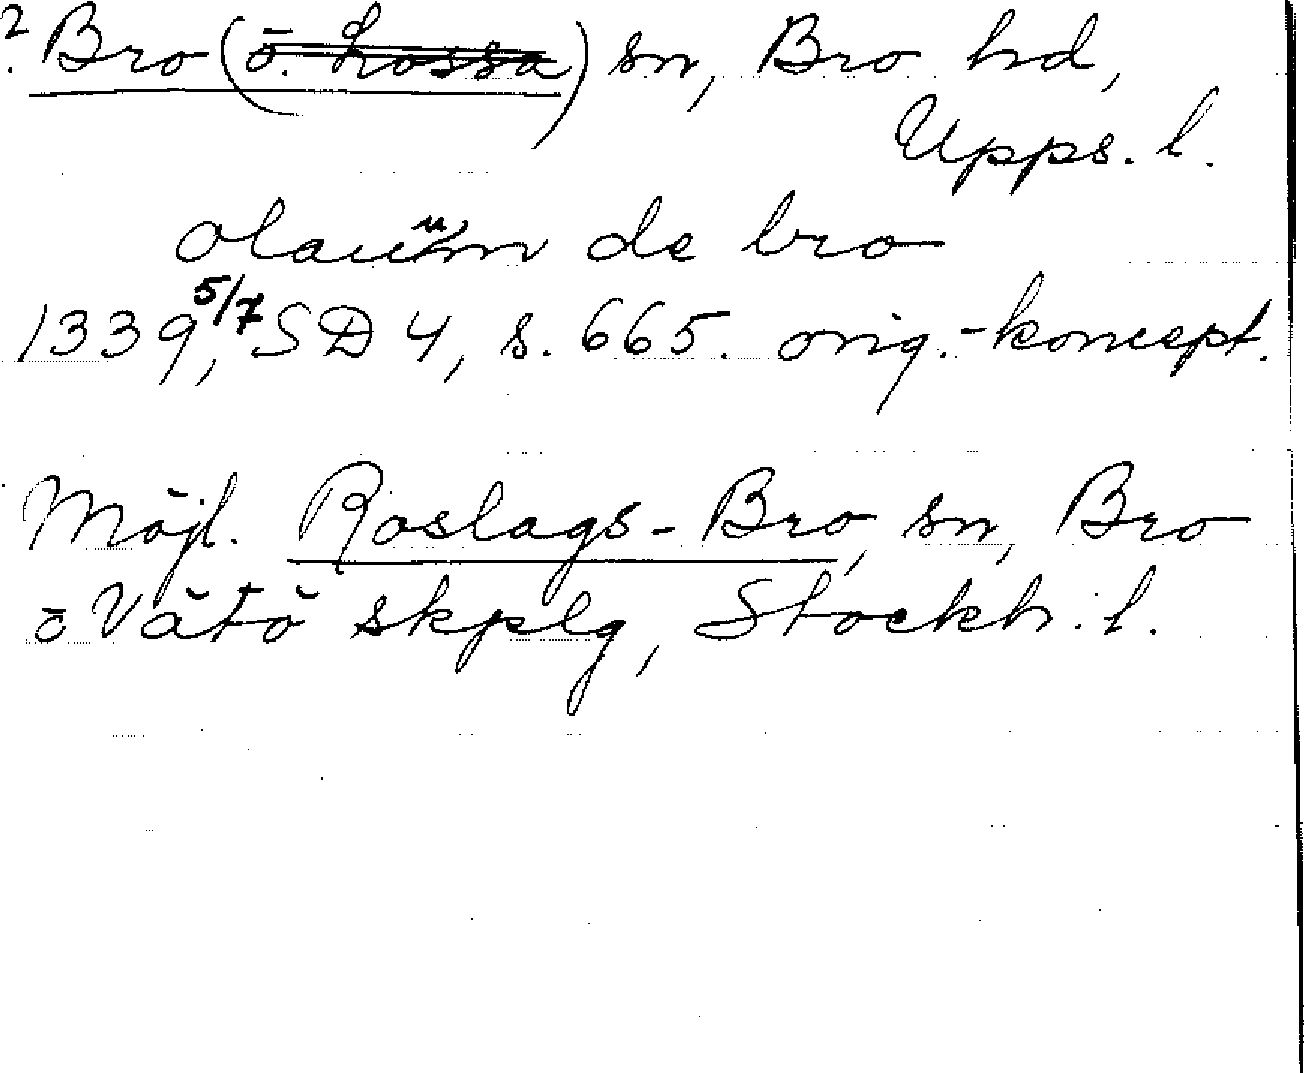 ? Bro (o. Lossa) sn, Bro hd,
Upps. l.
olauum de bro
1339 5/7, SD 4, s. 665. orig.-koncept.
Möjl. Roslags-Bro, sn, Bro
o Vätö skplg, Stockh. l.